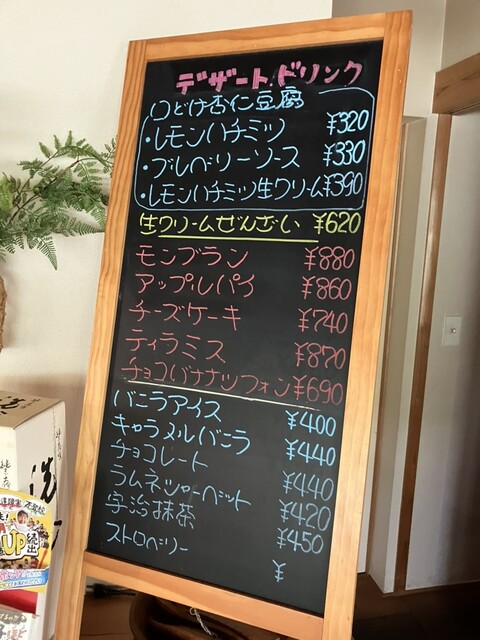 デザート.ドリンク
口どけ杏仁豆腐
・レモンハチミツ ¥320
・ブルベリーソース ¥330
・レモンハチミツ生クリーム ¥390
生クリームぜんざい ¥620
モンブラン ¥880
アップルパイ ¥860
チーズケーキ ¥740
ティラミス ¥870
チョコバナナシフォン ¥690
バニラアイス ¥400
キャラメルバニラ ¥440
チョコレート ¥440
ラムネシャーベット ¥420
宇治抹茶 ¥450
ストロベリー ¥
UP